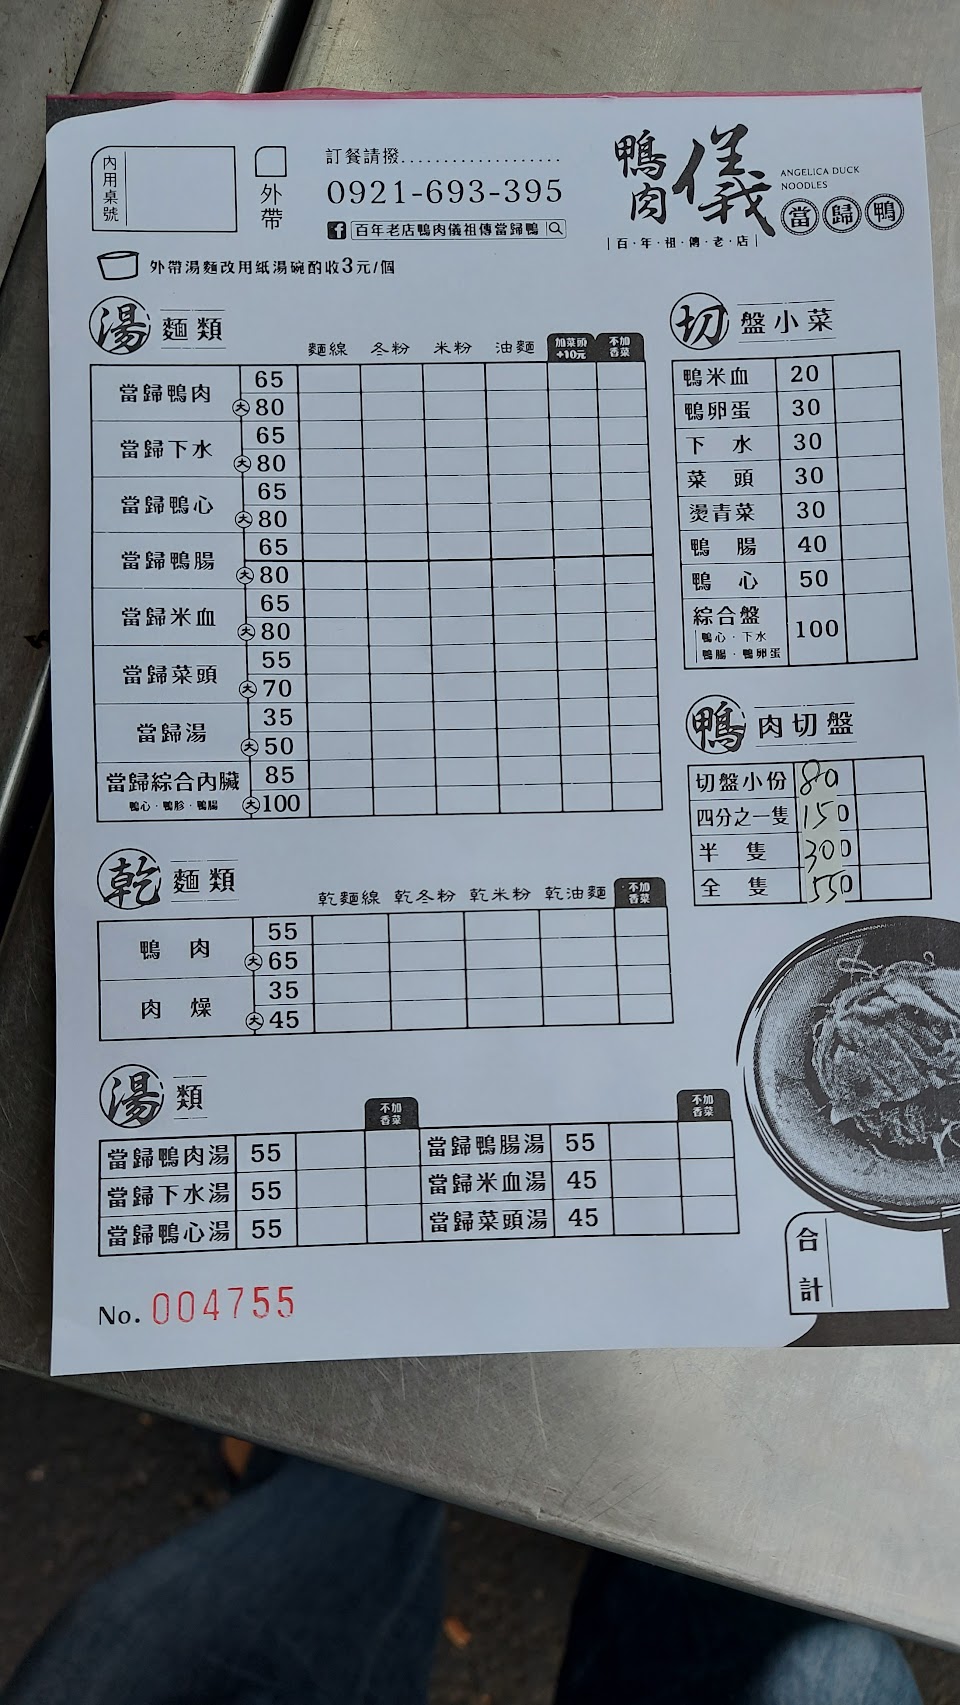 內用桌號
外帶
訂餐請撥...................
0921-693-395
百年老店鴨肉儀祖傳當歸鴨
鴨肉儀
ANGELICA DUCK
NOODLES
當歸鴨
百·年·祖·傳·老·店
外帶湯麵改用紙湯碗酌收3元/個
湯麵類
麵線 冬粉 米粉 油麵 加菜頭+10元 不加香菜
當歸鴨肉 65
大 80
當歸下水 65
大 80
當歸鴨心 65
大 80
當歸鴨腸 65
大 80
當歸米血 65
大 80
當歸菜頭 55
大 70
當歸湯 35
大 50
當歸綜合內臟 85
鴨心·鴨胗·鴨腸 大 100
切盤小菜
鴨米血 20
鴨卵蛋 30
下水 30
菜頭 30
燙青菜 30
鴨腸 40
鴨心 50
綜合盤 100
鴨心·下水
鴨腸·鴨卵蛋
鴨肉切盤
切盤小份 80
四分之一隻 150
半隻 300
全隻 550
乾麵類
乾麵線 乾冬粉 乾米粉 乾油麵 不加香菜
鴨肉 55
大 65
肉燥 35
大 45
湯類
不加香菜 不加香菜
當歸鴨肉湯 55 當歸鴨腸湯 55
當歸下水湯 55 當歸米血湯 45
當歸鴨心湯 55 當歸菜頭湯 45
合計
No. 004755